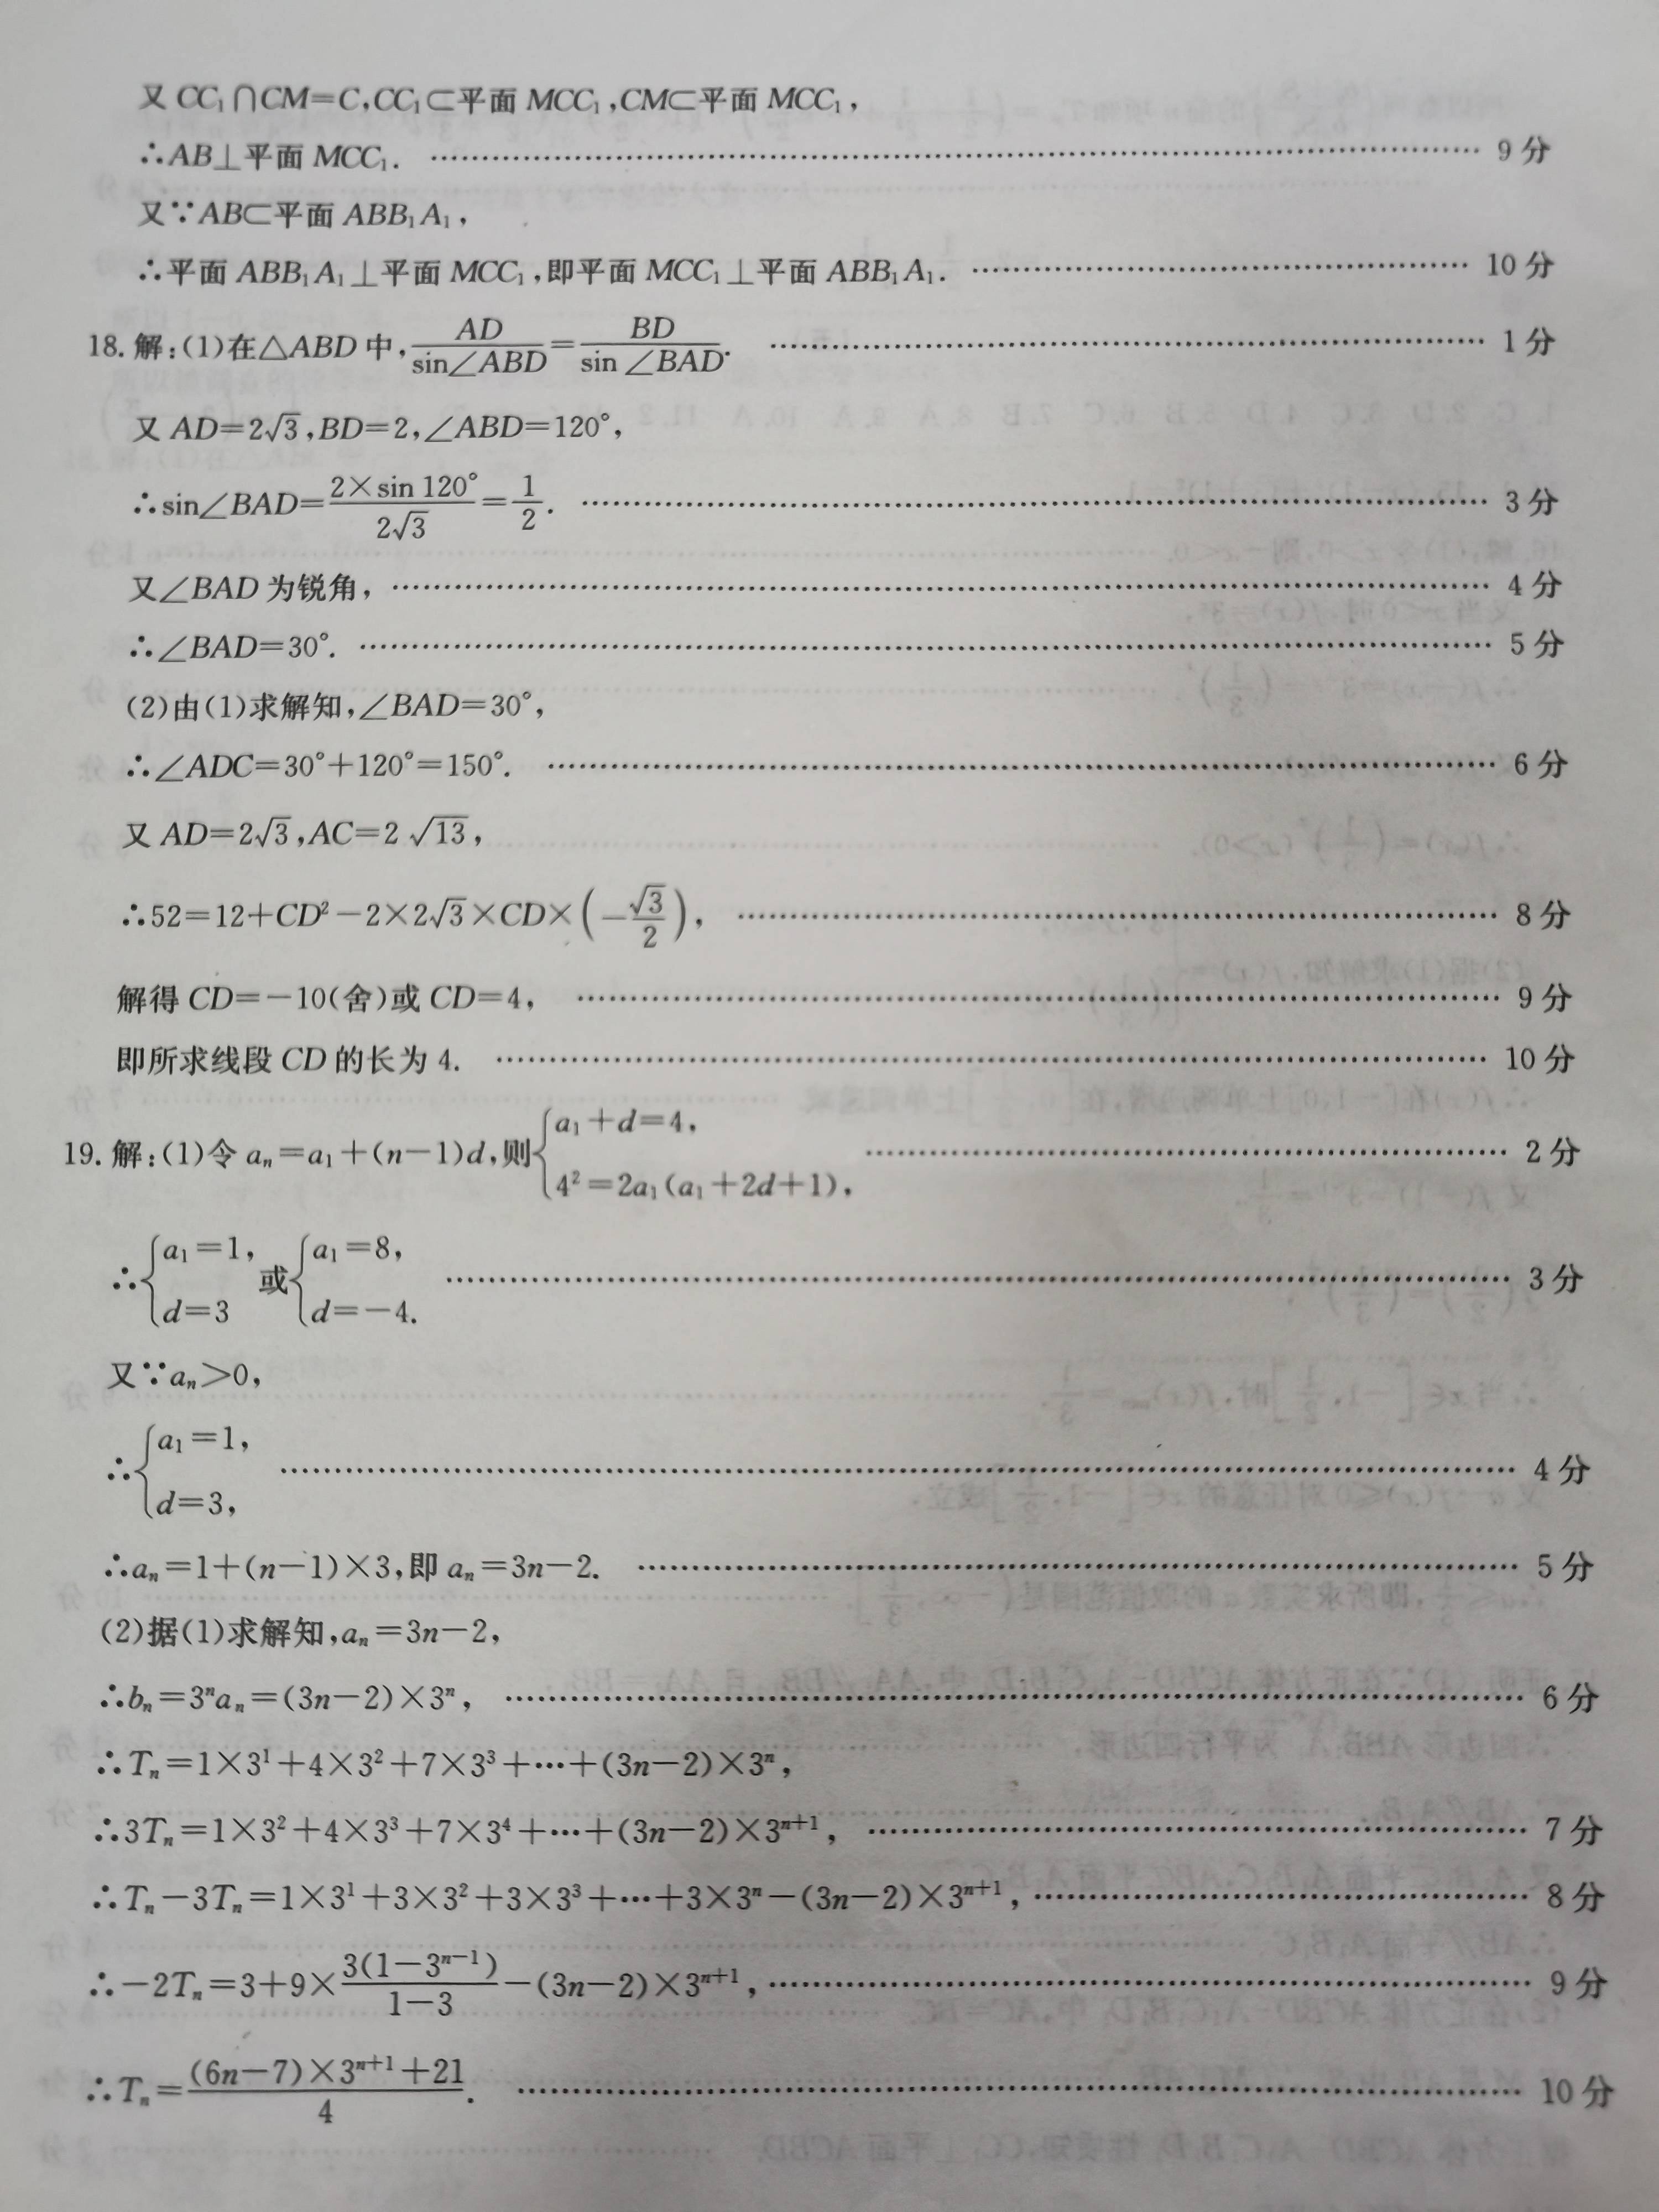 又 CC₁∩CM=C,CC₁⊂平面 MCC₁,CM⊂平面 MCC₁,
∴AB⊥平面 MCC₁. …… 9分
又∵AB⊂平面 ABB₁A₁,
∴平面 ABB₁A₁⊥平面 MCC₁,即平面 MCC₁⊥平面 ABB₁A₁. …… 10分
18. 解:(1)在△ABD 中,AD/sin∠ABD=BD/sin∠BAD. …… 1分
又 AD=2√3,BD=2,∠ABD=120°,
∴sin∠BAD=(2×sin 120°)/(2√3)=1/2. …… 3分
又∠BAD 为锐角, …… 4分
∴∠BAD=30°. …… 5分
(2)由(1)求解知,∠BAD=30°,
∴∠ADC=30°+120°=150°. …… 6分
又 AD=2√3,AC=2√13,
∴52=12+CD²-2×2√3×CD×(-√3/2), …… 8分
解得 CD=-10(舍)或 CD=4, …… 9分
即所求线段 CD 的长为 4. …… 10分
19. 解:(1)令 aₙ=a₁+(n-1)d,则{a₁+d=4, 4²=2a₁(a₁+2d+1), …… 2分
∴{a₁=1, d=3 或{a₁=8, d=-4. …… 3分
又∵aₙ>0,
∴{a₁=1, d=3, …… 4分
∴aₙ=1+(n-1)×3,即 aₙ=3n-2. …… 5分
(2)据(1)求解知,aₙ=3n-2,
∴bₙ=3ⁿaₙ=(3n-2)×3ⁿ, …… 6分
∴Tₙ=1×3¹+4×3²+7×3³+…+(3n-2)×3ⁿ,
∴3Tₙ=1×3²+4×3³+7×3⁴+…+(3n-2)×3ⁿ⁺¹, …… 7分
∴Tₙ-3Tₙ=1×3¹+3×3²+3×3³+…+3×3ⁿ-(3n-2)×3ⁿ⁺¹, …… 8分
∴-2Tₙ=3+9×3(1-3ⁿ⁻¹)/(1-3)-(3n-2)×3ⁿ⁺¹, …… 9分
∴Tₙ=((6n-7)×3ⁿ⁺¹+21)/4. …… 10分